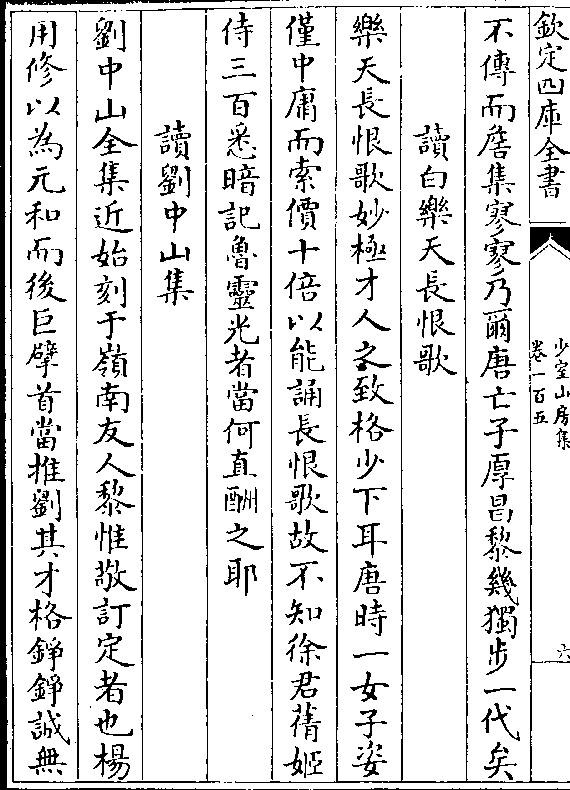 欽定四庫全書
少室山房集
卷一百五
六
不傳而詹集寥寥乃爾唐亡子厚昌黎幾獨步一代矣
讀白樂天長恨歌
樂天長恨歌妙極才人之致格少下耳唐時一女子姿
僅中庸而索價十倍以能誦長恨歌故不知徐君蒨姬
侍三百悉暗記魯靈光者當何直酬之耶
讀劉中山集
劉中山全集近始刻于嶺南友人黎惟敬訂定者也楊
用修以為元和而後巨擘首當推劉其才格錚錚誠無